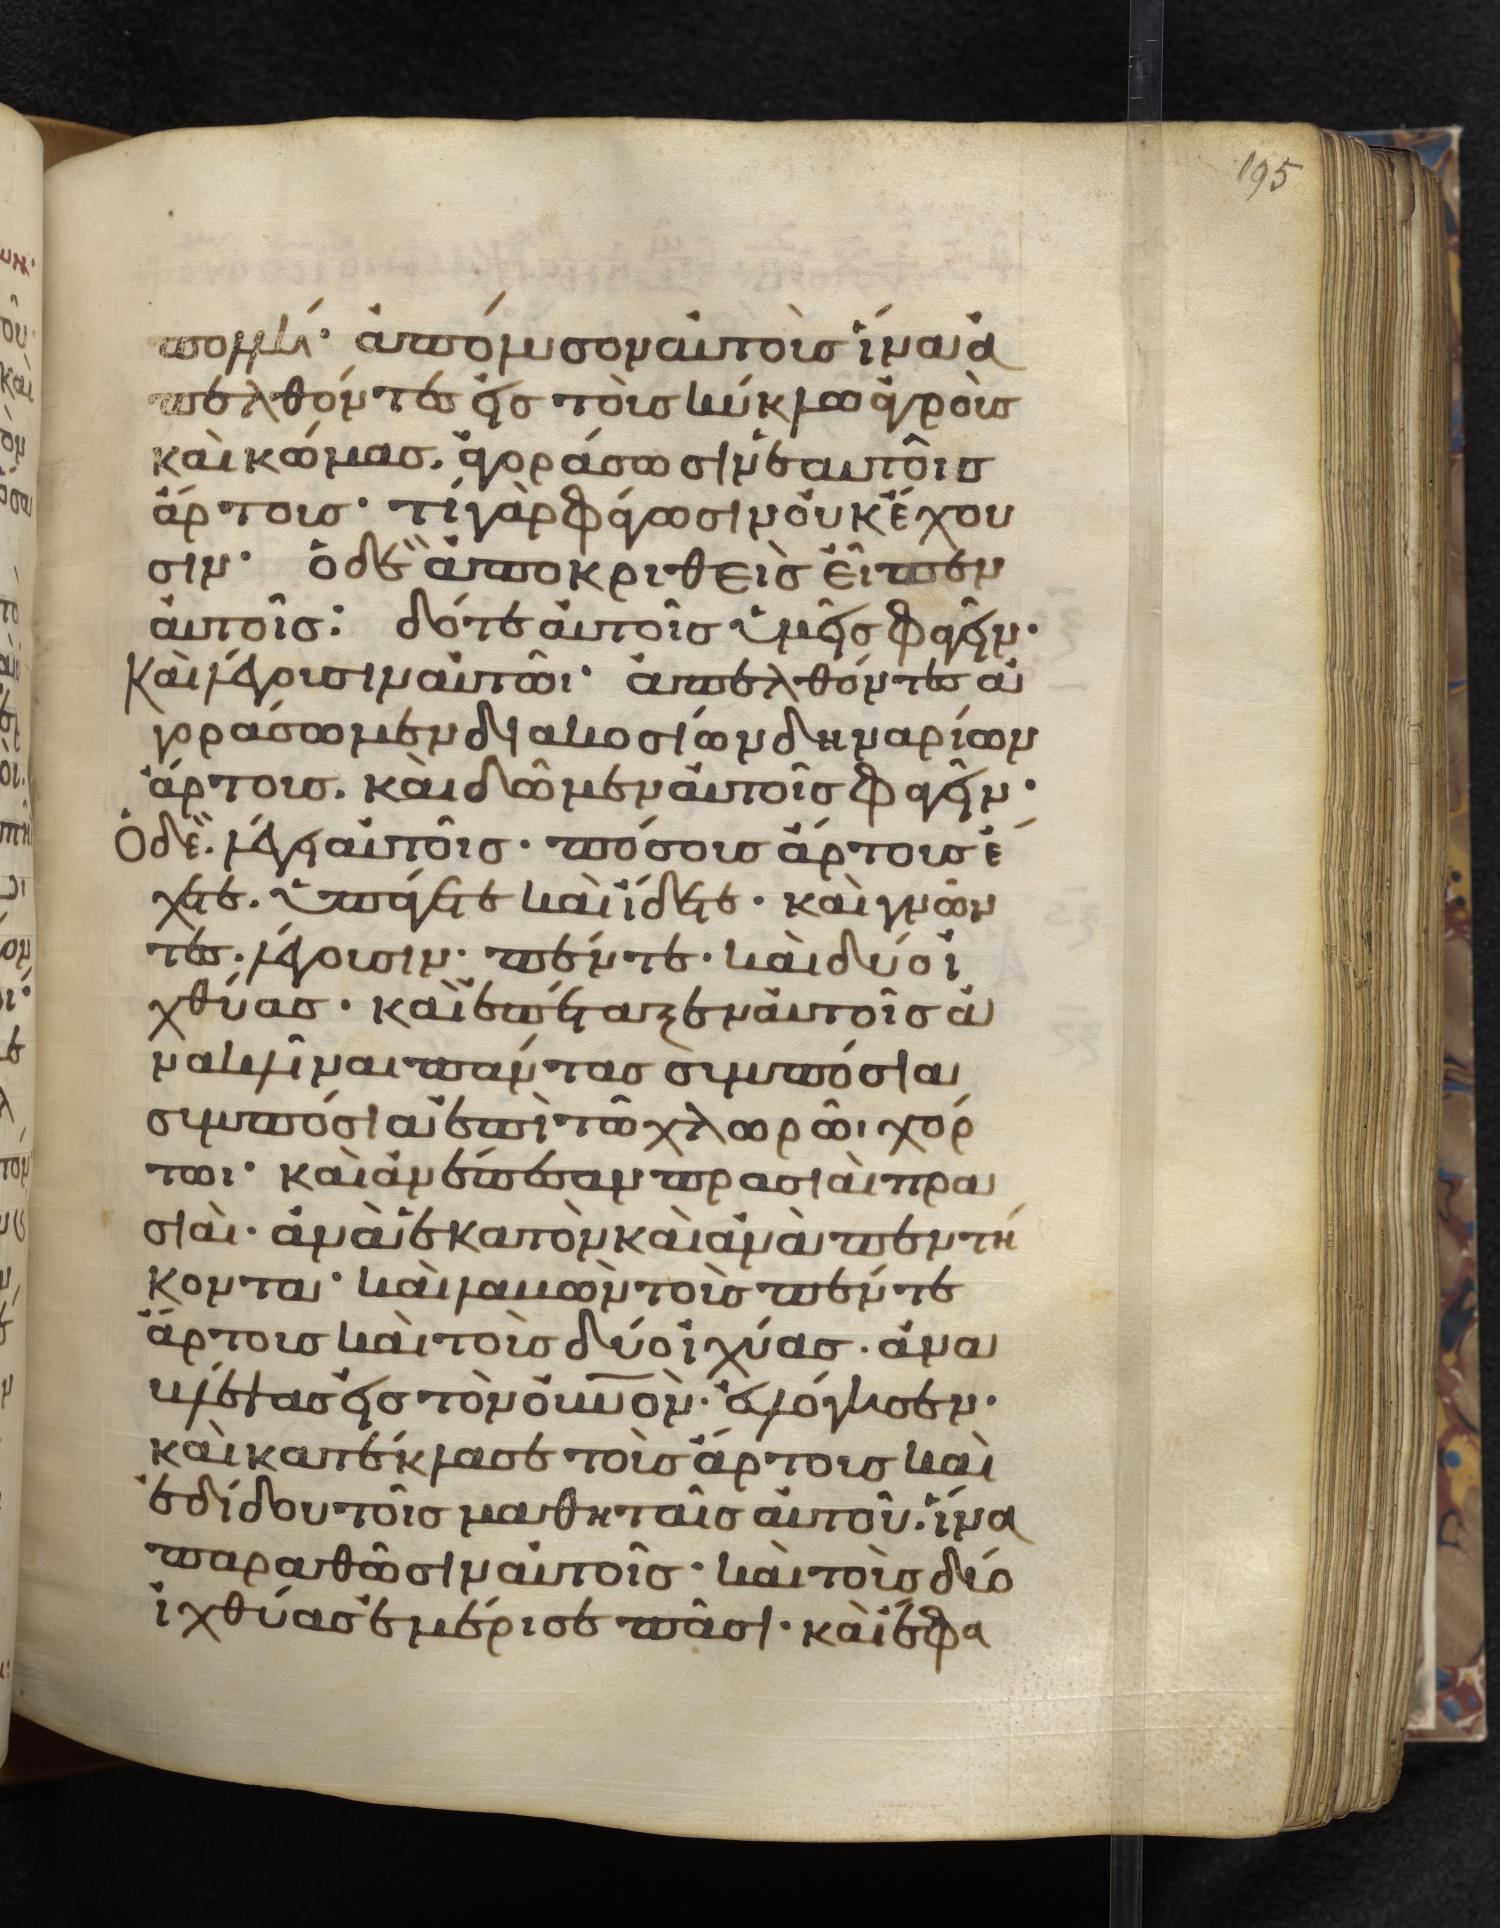 195
πολλή· ἀπόλυσον αὐτοὺς ἵνα ἀ
πελθόντες εἰς τοὺς κύκλω ἀγροὺς
καὶ κώμας. ἀγοράσωσιν ἑαυτοῖς
ἄρτους· τί γὰρ φάγωσιν οὐκ ἔχου
σιν· ὁ δὲ ἀποκριθεὶς εἶπεν
αὐτοῖς: δότε αὐτοῖς ὑμεῖς φαγεῖν·
Καὶ λέγουσιν αὐτῶι· ἀπελθόντες ἀ
γοράσωμεν διακοσίων δηναρίων
ἄρτους. καὶ δῶμεν αὐτοῖς φαγεῖν·
Ὁ δὲ. λέγει αὐτοῖς· πόσους ἄρτους ἔ
χετε. ὑπάγετε καὶ ἴδετε· καὶ γνῶν
τες. λέγουσιν· πέντε· καὶ δύο ἰ
χθύας· καὶ ἐπέταξεν αὐτοῖς ἀ
νακλῖναι πάντας συμπόσια
συμπόσια ἐπὶ τῶ χλωρῶι χόρ
τωι· καὶ ἀνέπεσαν πρασιαὶ πρα
σιαὶ· ἀνὰ ἑκατὸν καὶ ἀνὰ πεντή
κοντα· καὶ λαβὼν τοὺς πέντε
ἄρτους καὶ τοὺς δύο ἰχύας· ἀνα
βλέψας εἰς τὸν οὐνὸν· εὐλόγησεν·
καὶ κατέκλασε τοὺς ἄρτους καὶ
ἐδίδου τοῖς μαθηταῖς αὐτοῦ. ἵνα
παραθῶσιν αὐτοῖς· καὶ τοὺς δύο
ἰχθύας ἐμέρισε πᾶσι· καὶ ἔφα